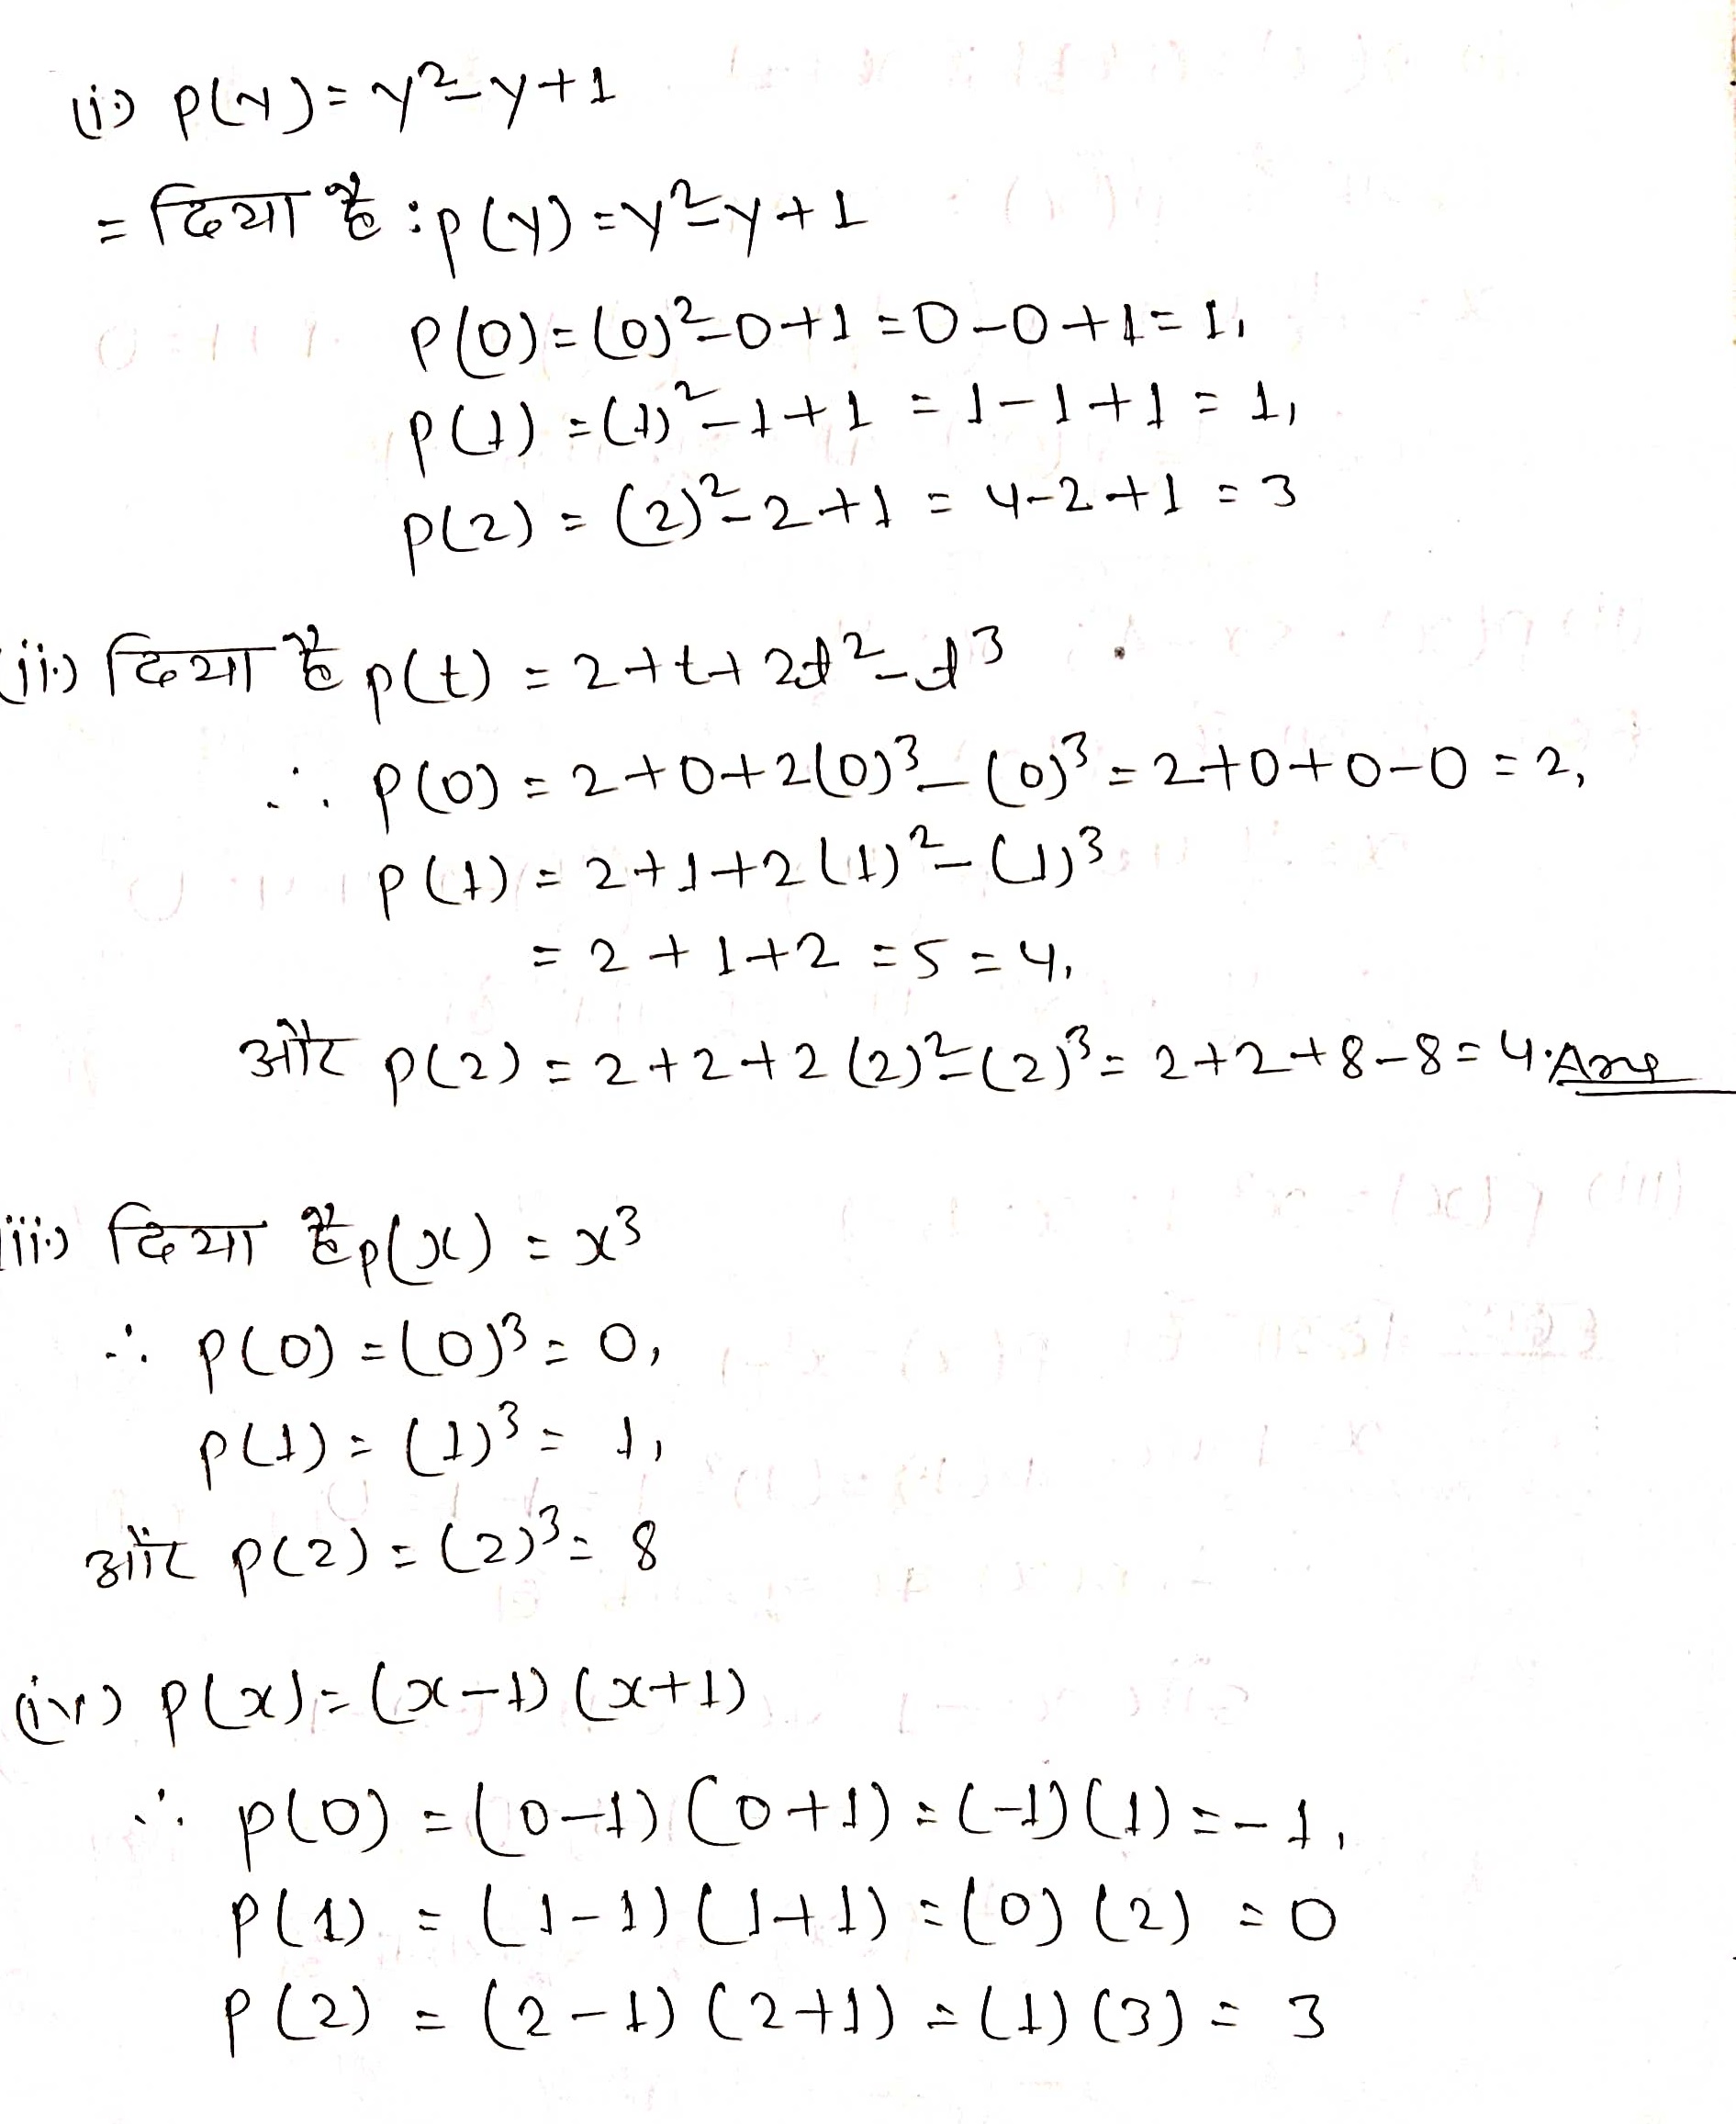 (i) p(y) = y²-y+1
= दिया है : p(y) = y²-y+1
p(0) = (0)²-0+1 = 0-0+1 = 1,
p(1) = (1)²-1+1 = 1-1+1 = 1,
p(2) = (2)²-2+1 = 4-2+1 = 3
(ii) दिया है p(t) = 2+t+2t²-t³
∴ p(0) = 2+0+2(0)³-(0)³ = 2+0+0-0 = 2,
p(1) = 2+1+2(1)²-(1)³
= 2+1+2 = 5 = 4,
और p(2) = 2+2+2(2)²-(2)³ = 2+2+8-8 = 4. Ans
iii) दिया है p(x) = x³
∴ p(0) = (0)³ = 0,
p(1) = (1)³ = 1,
और p(2) = (2)³ = 8
(iv) p(x) = (x-1) (x+1)
∴ p(0) = (0-1) (0+1) = (-1) (1) = -1,
p(1) = (1-1) (1+1) = (0) (2) = 0
p(2) = (2-1) (2+1) = (1) (3) = 3